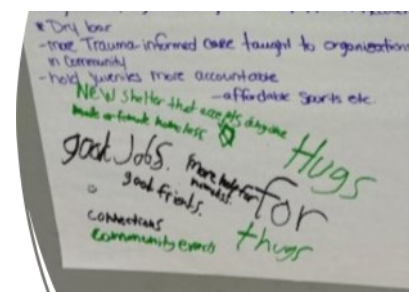 * Dry bar
- more Trauma-informed care taught to organizations
in Community
- hold juveniles more accountable
- affordable Sports etc.
NEW Shelter that accepts anyone
male or female homeless
good Jobs.
more help for
good friends.
connections
community events
Hugs
for
thugs